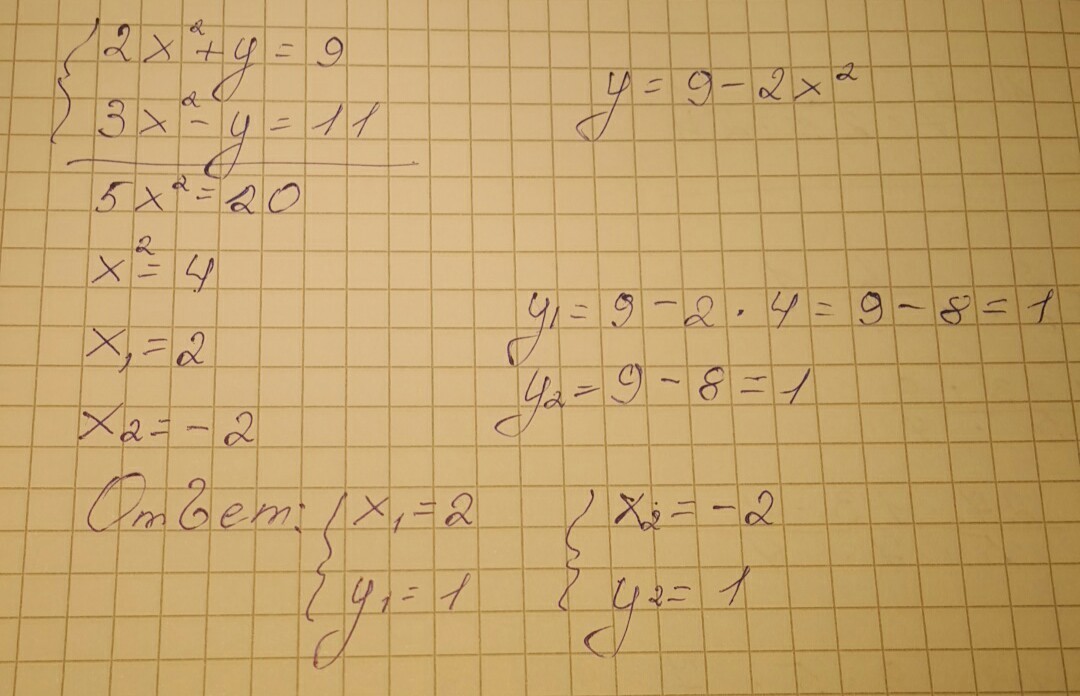 2x² + y = 9
3x² - y = 11
y = 9 - 2x²
5x² = 20
x² = 4
x₁ = 2
x₂ = - 2
y₁ = 9 - 2 · 4 = 9 - 8 = 1
y₂ = 9 - 8 = 1
Ответ: { x₁ = 2 { x₂ = - 2
y₁ = 1 y₂ = 1